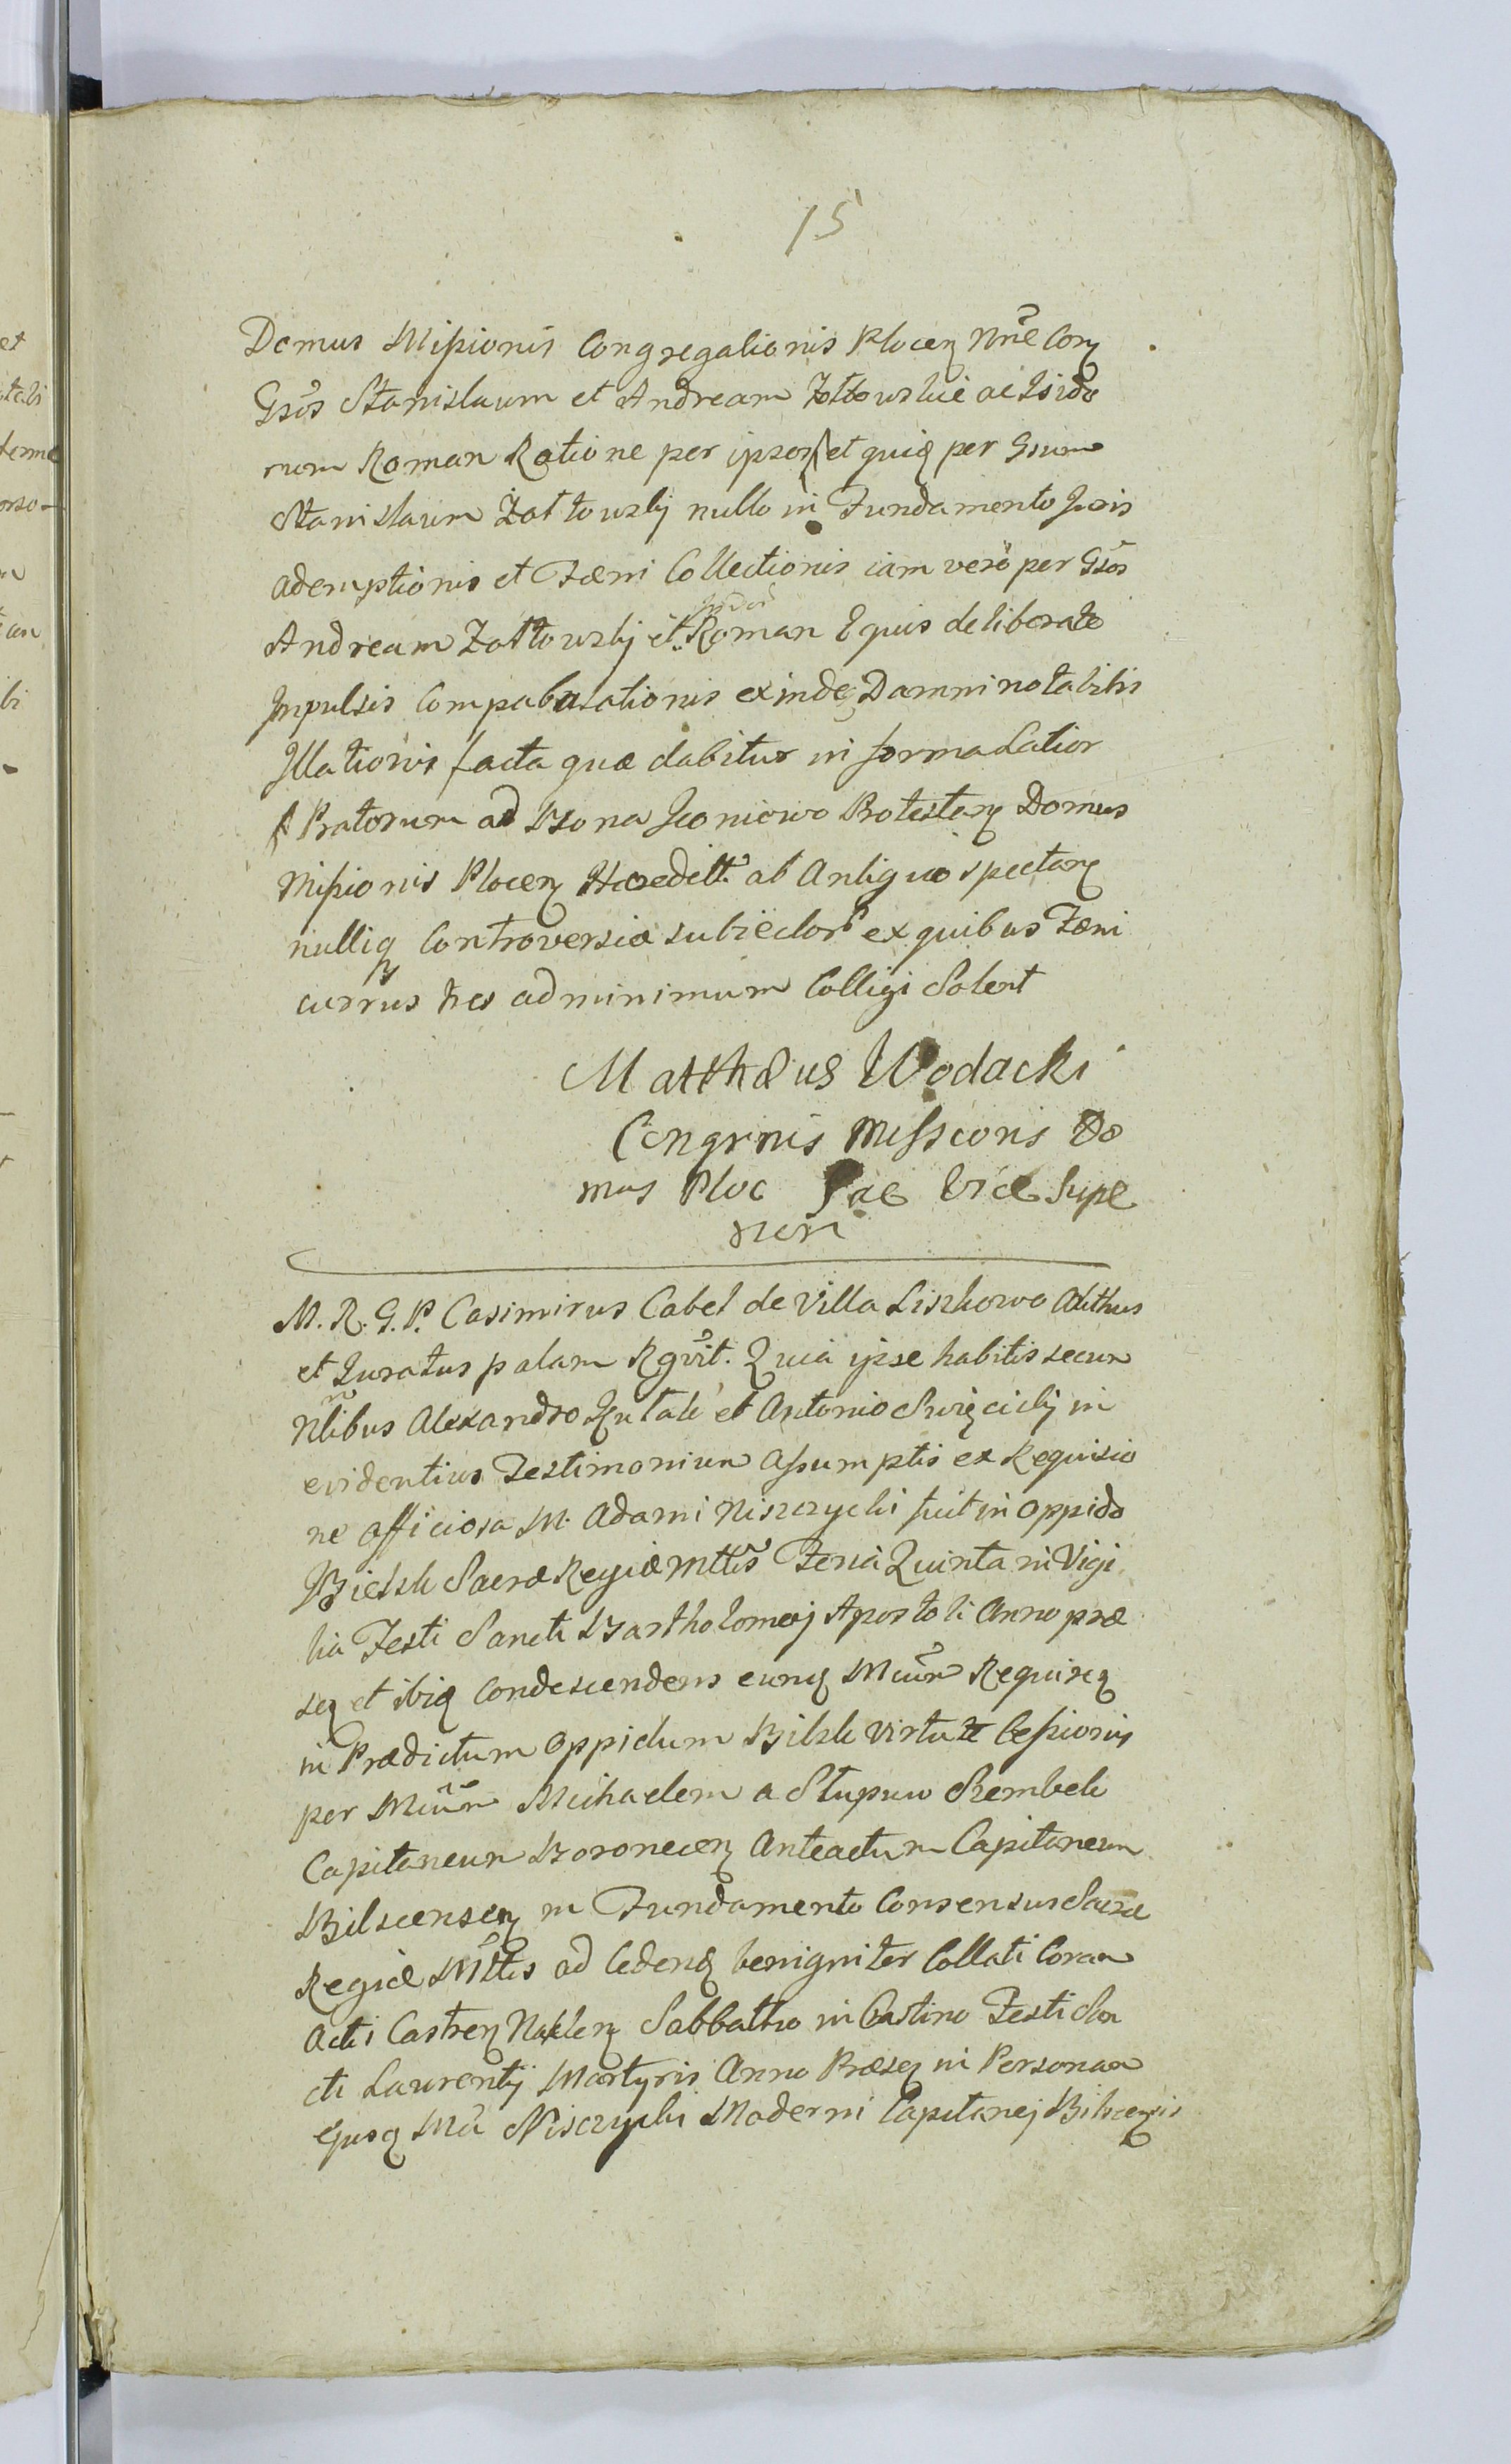 15
Domus Missionis Congregationis Plocen Nnē Con
Gsos Stanislaum et Andream Żołtowskie ac Isido
rum Roman Ratione per ipsos et quiq per Gsum
Stanislaum Żołtowskij nullo in Fundamento Juris
ademptionis et Fæni Collectionis iam vero per Gsos
Andream Żołtowskij et Isidor Roman Equis deliberate
Impulsis Compabulationis exinde Damni notabilis
Illationis facta quæ dabitur in forma Latior
Pratorum ad Bona Protestan Domus
Missionis Plocen Hæredittē ab Antiquo spectan
nulliq Controversiæ subiector ex quibus Fæni
currus tres ad minimum Colligi Solent
Matthæus Wodacki
Congrnis Missionis Do
mus Ploc Vice Supe
rior
M. R. G. P. Casimirus Cabel de Villa Liszkowo Abithus
et Juratus palam Rgvit. Quia ipse habitis secum
Nlibus Alexandro et Antonio Święcickij in
evidentius Testimonium Assumptis ex Requisio
ne officiosa M. Adami Niszczycki fuit in oppido
Bielsk Sacræ Regiæ Mttis Feria Quinta in Vigi
lia Festi Sancti Bartholomej Apostoli Anno præ
sen et ibiq Condescendens eunq Mcum Requiren
in Prædictum Oppidum Bilsk virtute Cessionis
per Mcum Michaelem a Słupuw Szembek
Capitaneum Anteactum Capitaneum
Bilscensen in Fundamento Consensus Sacræ
Regiæ Mttis ad Cedend benigniter Collati Coram
Actis Castren Naklen Sabbatho in Crastino Festi San
cti Laurentij Martyris Anno Præsen in Personam
ejusq Mci Niszczycki Moderni Capitanej Bilscensis